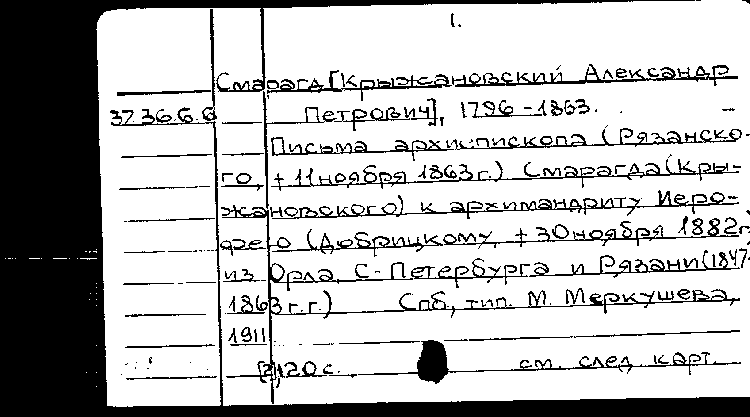 1.
Смарагд [Крыжановский Александр
37.36.6.6 Петрович], 1796-1863.
Письма архиепископа (Рязанско-
го, + 11 ноября 1863 г.) Смарагда (Кры-
жановского) к архимандриту Иеро-
фею (Добрицкому, + 30 ноября 1882 г.
из Орла, С-Петербурга и Рязани (1847-
1863 г.г.) Спб, тип. М. Меркушева,
1911
[2], 120 с. см. след. карт.